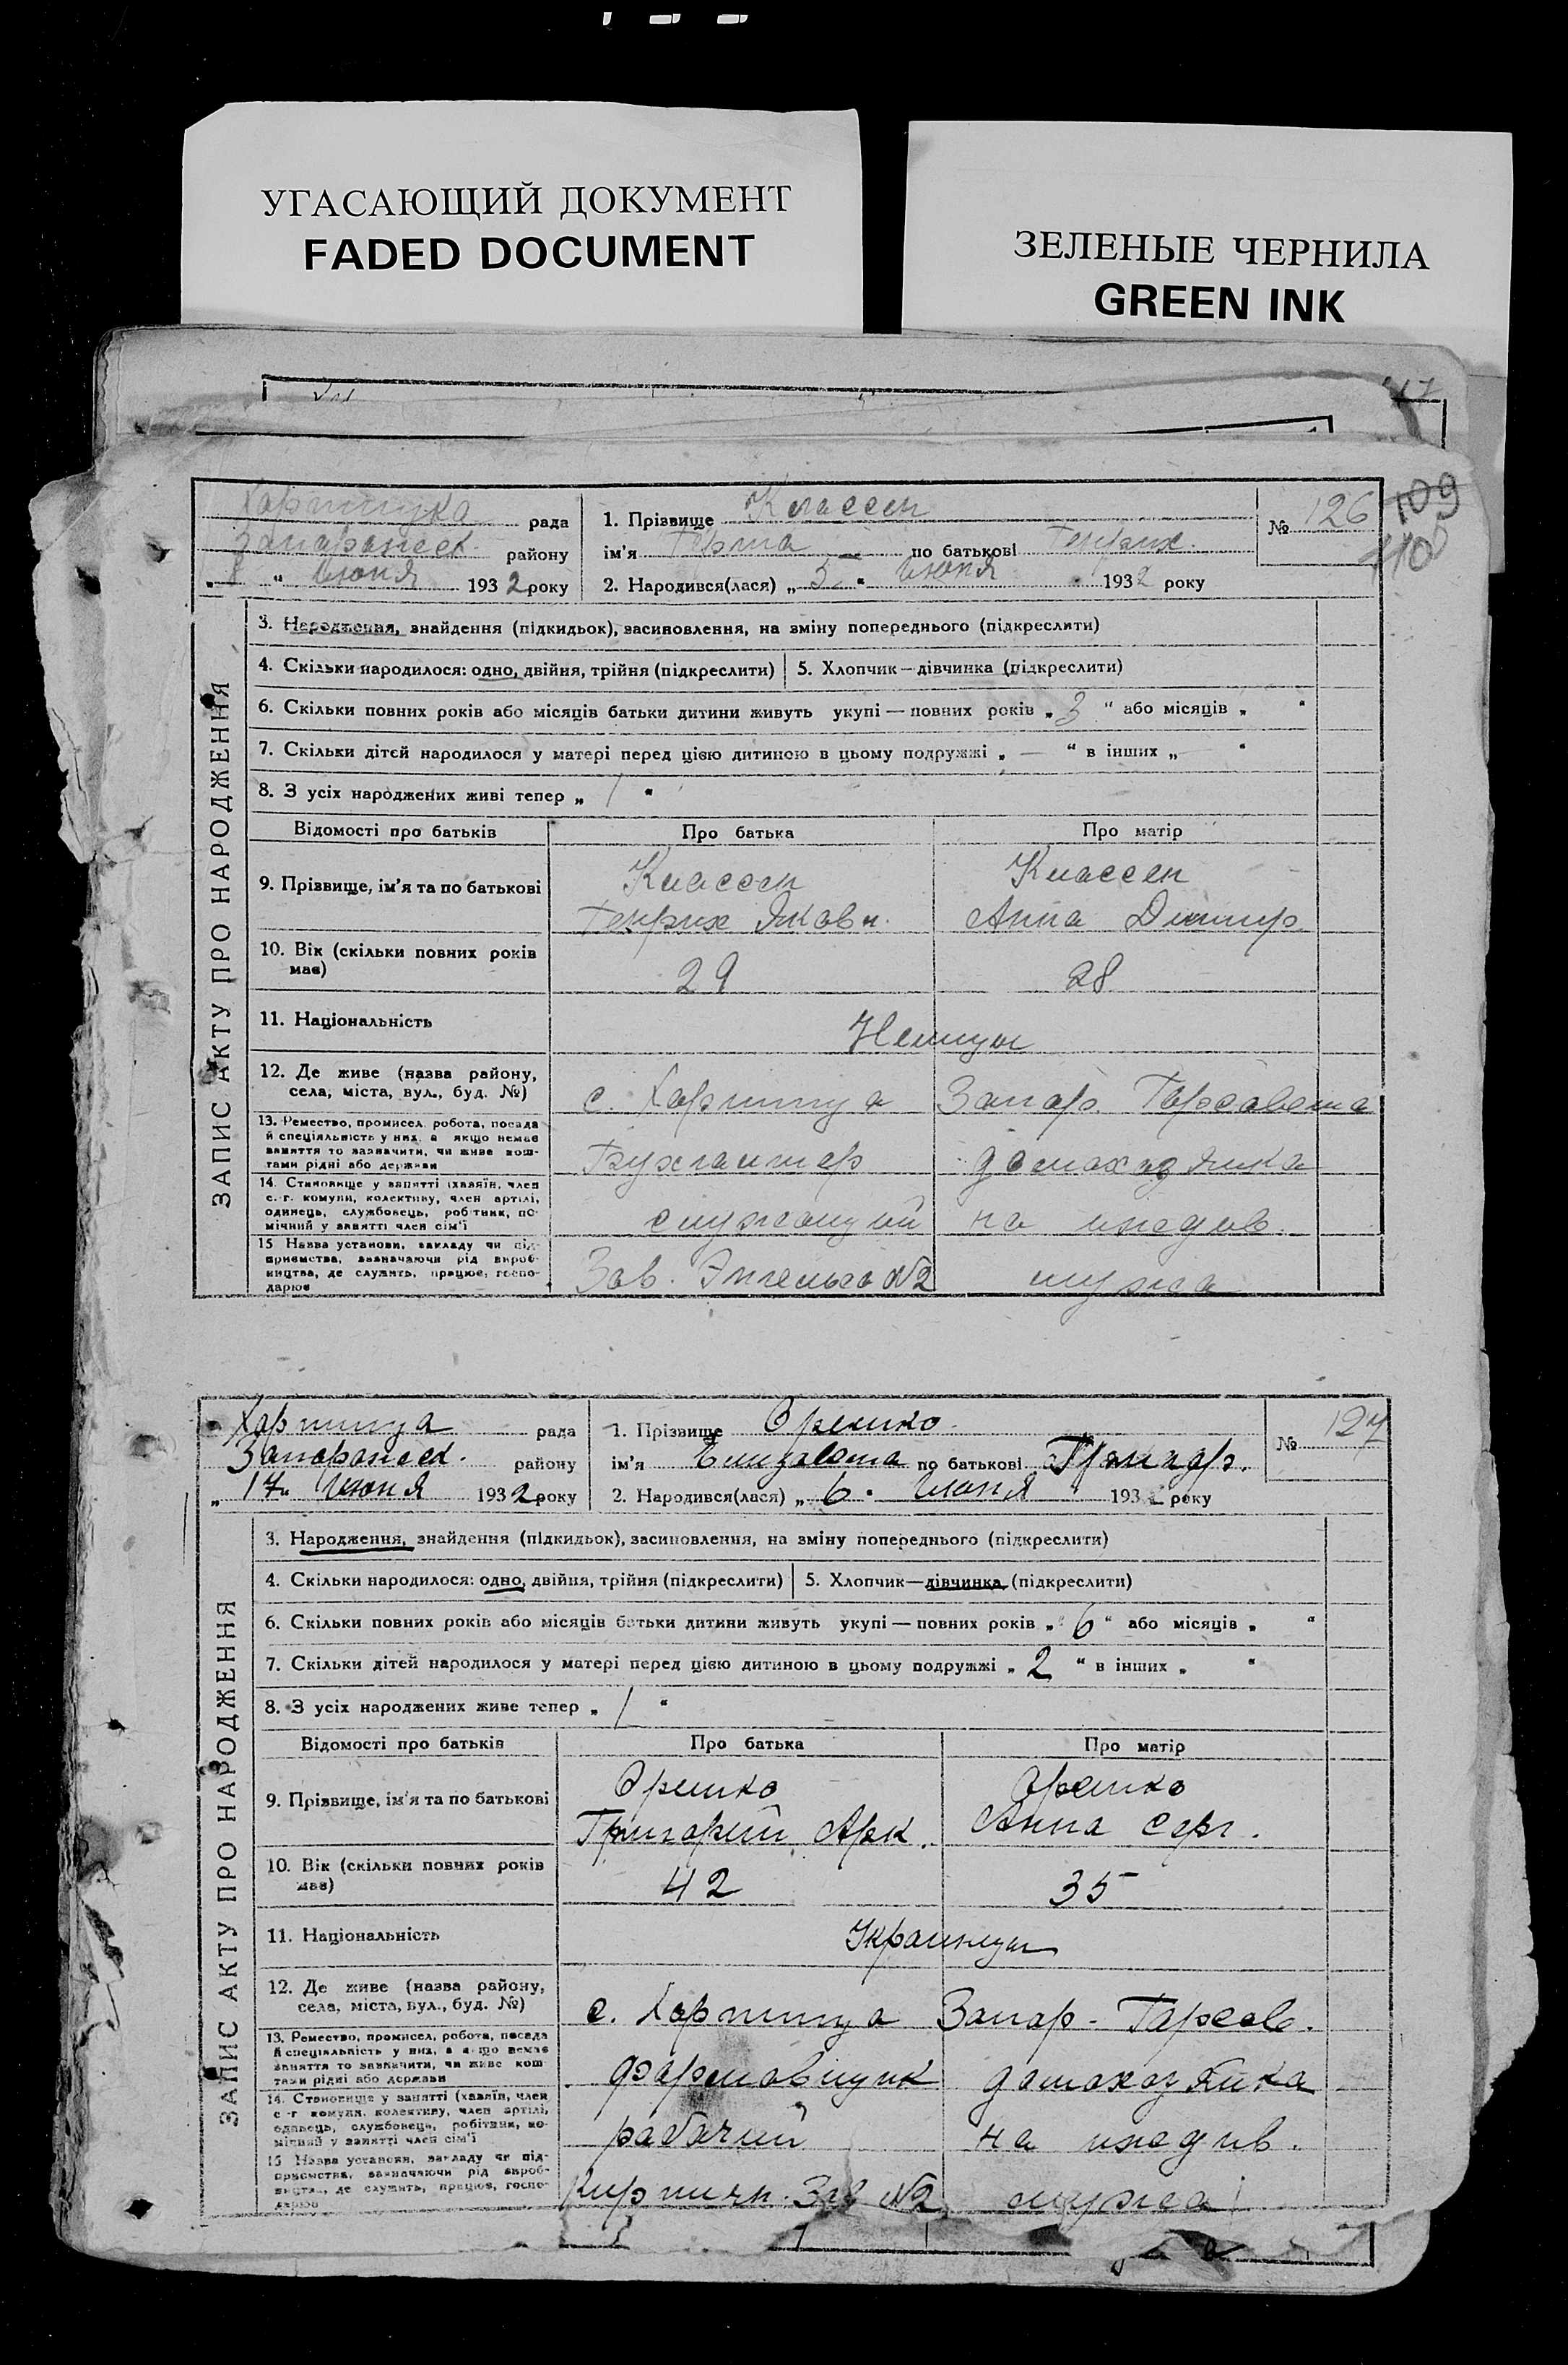 УГАСАЮЩИЙ ДОКУМЕНТ
FADED DOCUMENT
ЗЕЛЕНЫЕ ЧЕРНИЛА
GREEN INK
17
109
110
ЗАПИС АКТУ ПРО НАРОДЖЕННЯ
Хортицка рада
Запорожск. району
" июня 1932 року
1. Прізвище Классен
ім'я Герта по батькові Генрих.
2. Народився(лася) „ 5 " июня 1932 року
№ 126
3. Народження, знайдення (підкидьок), засиновлення, на зміну попереднього (підкреслити)
4. Скільки народилося: одно, двійня, трійня (підкреслити) 5. Хлопчик — дівчинка (підкреслити)
6. Скільки повних років або місяців батьки дитини живуть укупі — повних років „ 3 " або місяців „ "
7. Скільки дітей народилося у матері перед цією дитиною в цьому подружжі „ — " в інших „ "
8. З усіх народжених живі тепер „ 1 "
Відомості про батьків Про батька Про матір
9. Прізвище, ім'я та по батькові
Классен Классен
Генрих Яковл. Анна Дмитр.
10. Вік (скільки повних років має) 29 28
11. Національність Немцы
12. Де живе (назва району, села, міста, вул., буд. №) с. Хортица Запор.
13. Ремество, промисел, робота, посада й спеціяльність у них, а якщо немає заняття то зазначити, чи живе коштами рідні або держави
Бухгалтер домохозяйка
14. Становище у занятті (хазяїн, член с.-г. комуни, колективу, член артілі, одинець, службовець, робітник, помічний у занятті член сім'ї
служащий на иждив.
15 Назва установи, закладу чи підприємства, зазначаючи рід виробництва, де служить, працює, господарює
Зав. Энгельса №2 мужа
ЗАПИС АКТУ ПРО НАРОДЖЕННЯ
Хортица рада
Запорожск. району
„ 17 " июня 1932 року
1. Прізвище Орешко
ім'я Елизавета по батькові Григор.
2. Народився(лася) „ 6 " июня 1932 року
№ 127
3. Народження, знайдення (підкидьок), засиновлення, на зміну попереднього (підкреслити)
4. Скільки народилося: одно, двійня, трійня (підкреслити) 5. Хлопчик — дівчинка (підкреслити)
6. Скільки повних років або місяців батьки дитини живуть укупі — повних років „ 6 " або місяців „ "
7. Скільки дітей народилося у матері перед цією дитиною в цьому подружжі „ 2 " в інших „ "
8. З усіх народжених живе тепер „ 1 "
Відомості про батьків Про батька Про матір
9. Прізвище, ім'я та по батькові
Орешко Орешко
Григорий Арк. Анна Серг.
10. Вік (скільки повних років має) 42 35
11. Національність Украинцы
12. Де живе (назва району, села, міста, вул., буд. №) с. Хортица Запор.
13. Ремество, промисел, робота, посада й спеціяльність у них, а якщо немає заняття то зазначити, чи живе коштами рідні або держави
формовщик домохозяйка
14. Становище у занятті (хазяїн, член с.-г. комуни, колективу, член артілі, одинець, службовець, робітник, помічний у занятті член сім'ї
рабочий на иждив.
15 Назва установи, закладу чи підприємства, зазначаючи рід виробництва, де служить, працює, господарює
Кирпичн. Зав №2 мужа